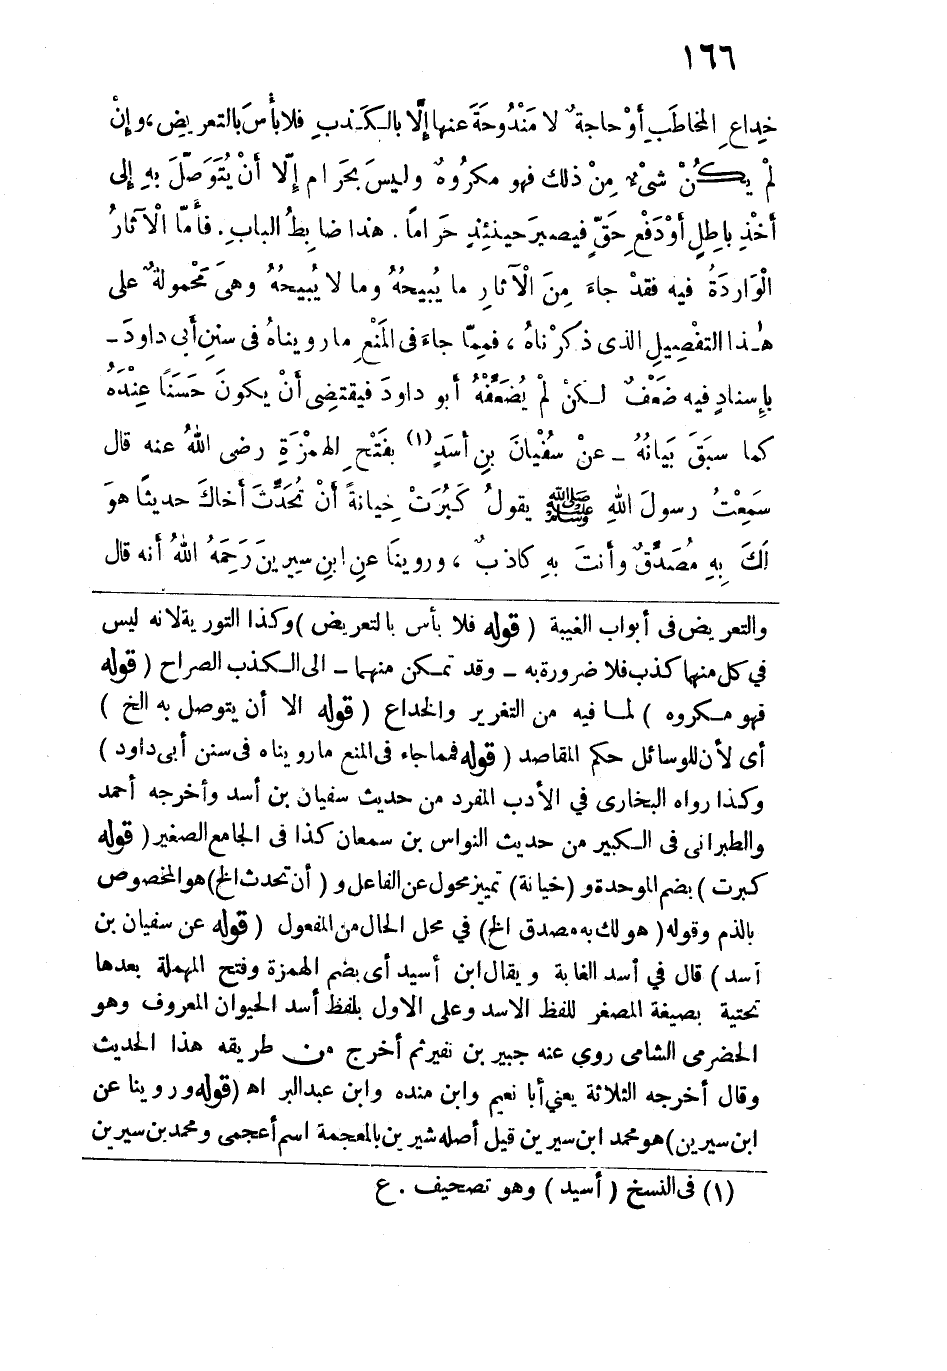 ١٦٦
خِداعِ المخاطَبِ أَوْ حاجةٌ لا مَنْدُوحَةَ عنها إلَّا بالكَذبِ فلا بأْسَ بالتعريضِ، وإنْ
لمْ يكُنْ شىْءٌ مِنْ ذلك فهو مكرُوهٌ وليسَ بحَرَامٍ إلّا أنْ يُتَوَصّلَ بهِ إلى
أخْذِ باطِلٍ أوْ دَفْعِ حَقٍّ فيصيرَ حينئِذٍ حَرَامًا. هذا ضابِطُ البابِ. فأمّا الْآثارُ
الْوَارِدَةُ فيه فقدْ جاءَ مِنَ الْآثارِ ما يُبيحُهُ وما لا يُبيحُهُ وهىَ مَحْمولةٌ على
هٰذا التفْصِيلِ الذى ذكرْناهُ، فممِّا جاءَ فى المَنْعِ مارويناهُ فى سننِ أبى داودَ ـ
بإسنادٍ فيه ضَعْفٌ لكنْ لمْ يُضَعِّفْهُ أبو داودَ فيقتضِى أنْ يكونَ حَسَنًا عِنْدَهُ
كما سبَقَ بَيَانُهُ ـ عنْ سُفْيانَ بنِ أسَدٍ (١) بفَتْحِ الهمْزَةِ رضى اللهُ عنه قال
سَمِعْتُ رسولَ اللهِ ﷺ يقولُ كَبُرَتْ خِيانةً أنْ تُحَدِّثَ أخاكَ حديثًا هوَ
لَكَ بِهِ مُصَدِّقٌ وأنتَ بهِ كاذبٌ، وروينَا عنِ ابنِ سِيرينَ رَحِمَهُ اللهُ أنه قال
والتعريض فى أبواب الغيبة ( قوله فلا بأس بالتعريض ) وكذا التورية لانه ليس
في كل منها كذب فلا ضرورة به ـ وقد تمكن منهما ـ الى الكذب الصراح ( قوله
فهو مكروه ) لما فيه من التغرير والخداع ( قوله الا أن يتوصل به الخ )
أى لأن للوسائل حكم المقاصد ( قوله فمما جاء فى المنع مارويناه فى سنن أبى داود )
وكذا رواه البخارى في الأدب المفرد من حديث سفيان بن أسد وأخرجه أحمد
والطبرانى فى الكبير من حديث النواس بن سمعان كذا فى الجامع الصغير ( قوله
كبرت ) بضم الموحدة و (خيانة) تمييز محول عن الفاعل و ( أن تحدث الخ) هو المخصوص
بالذم وقوله ( هو لك به مصدق الخ) في محل الحال من المفعول ( قوله عن سفيان بن
أسد ) قال في أسد الغابة ويقال ابن أسيد أى بضم الهمزة وفتح المهملة بعدها
تحتية بصيغة المصغر للفظ الاسد وعلى الاول بلفظ أسد الحيوان المعروف وهو
الحضرمى الشامى روي عنه جبير بن نفير ثم أخرج من طريقه هذا الحديث
وقال أخرجه الثلاثة يعني أبا نعيم وابن منده وابن عبدالبر اه (قوله وروينا عن
ابن سيرين) هو محمد ابن سيرين قيل أصله شيرين بالمعجمة اسم أعجمى ومحمد بن سيرين
(١) فى النسخ ( أسيد ) وهو تصحيف . ع